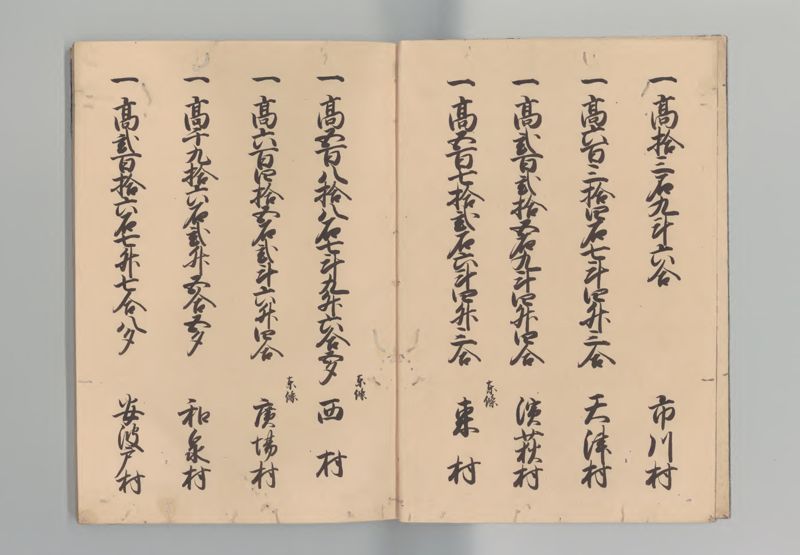 一 高拾三石九斗六合 市川村
一 高六百三拾四石七斗四升三合 天津村
一 高弐百弐拾五石九斗四升四合 濱荻村
一 高五百七拾弐石六斗四升三合 東條 東村
一 高五百八拾八石七斗九升六合五夕 東條 西村
一 高六百四拾五石弐斗六升四合 東條 廣場村
一 高千九拾六石弐升五合五夕 和泉村
一 高弐百拾六石七升七合八夕 安波戸村